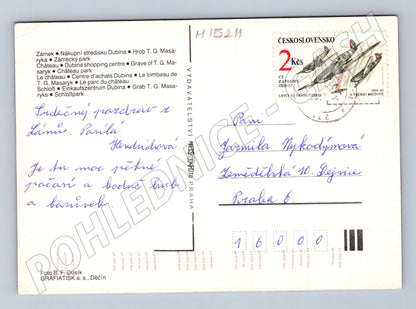 Zámek • Nákupní středisko Dubina • Hrob T. G. Masa-
ryka • Zámecký park
Château • Dubina shopping centre • Grave of T. G. Ma-
saryk • Château park
Le château • Centre d'achats Dubina • Le tombeau de
T. G. Masaryk • Le parc du château
Schloß • Einkaufszentrum Dubina • Grab T. G. Masaryks •
Schloßpark
Srdečný pozdrav z
Lánů. Posílá
Je tu moc pěkné
počasí a hodně hub
a borůvek.
Foto B. F. Dusík
GRAFIATISK a. s., Děčín
VYDAVATELSTVÍ
PRAHA
M 15211
ČESKOSLOVENSKO
2 Kčs
ČS.
ZÁPADNÍ
ODBOJ
Paní
Jarmila Nykodýmova
Zemědělská 10. Dejvice
Praha 6.
16000
POHLEDNICE - CASH